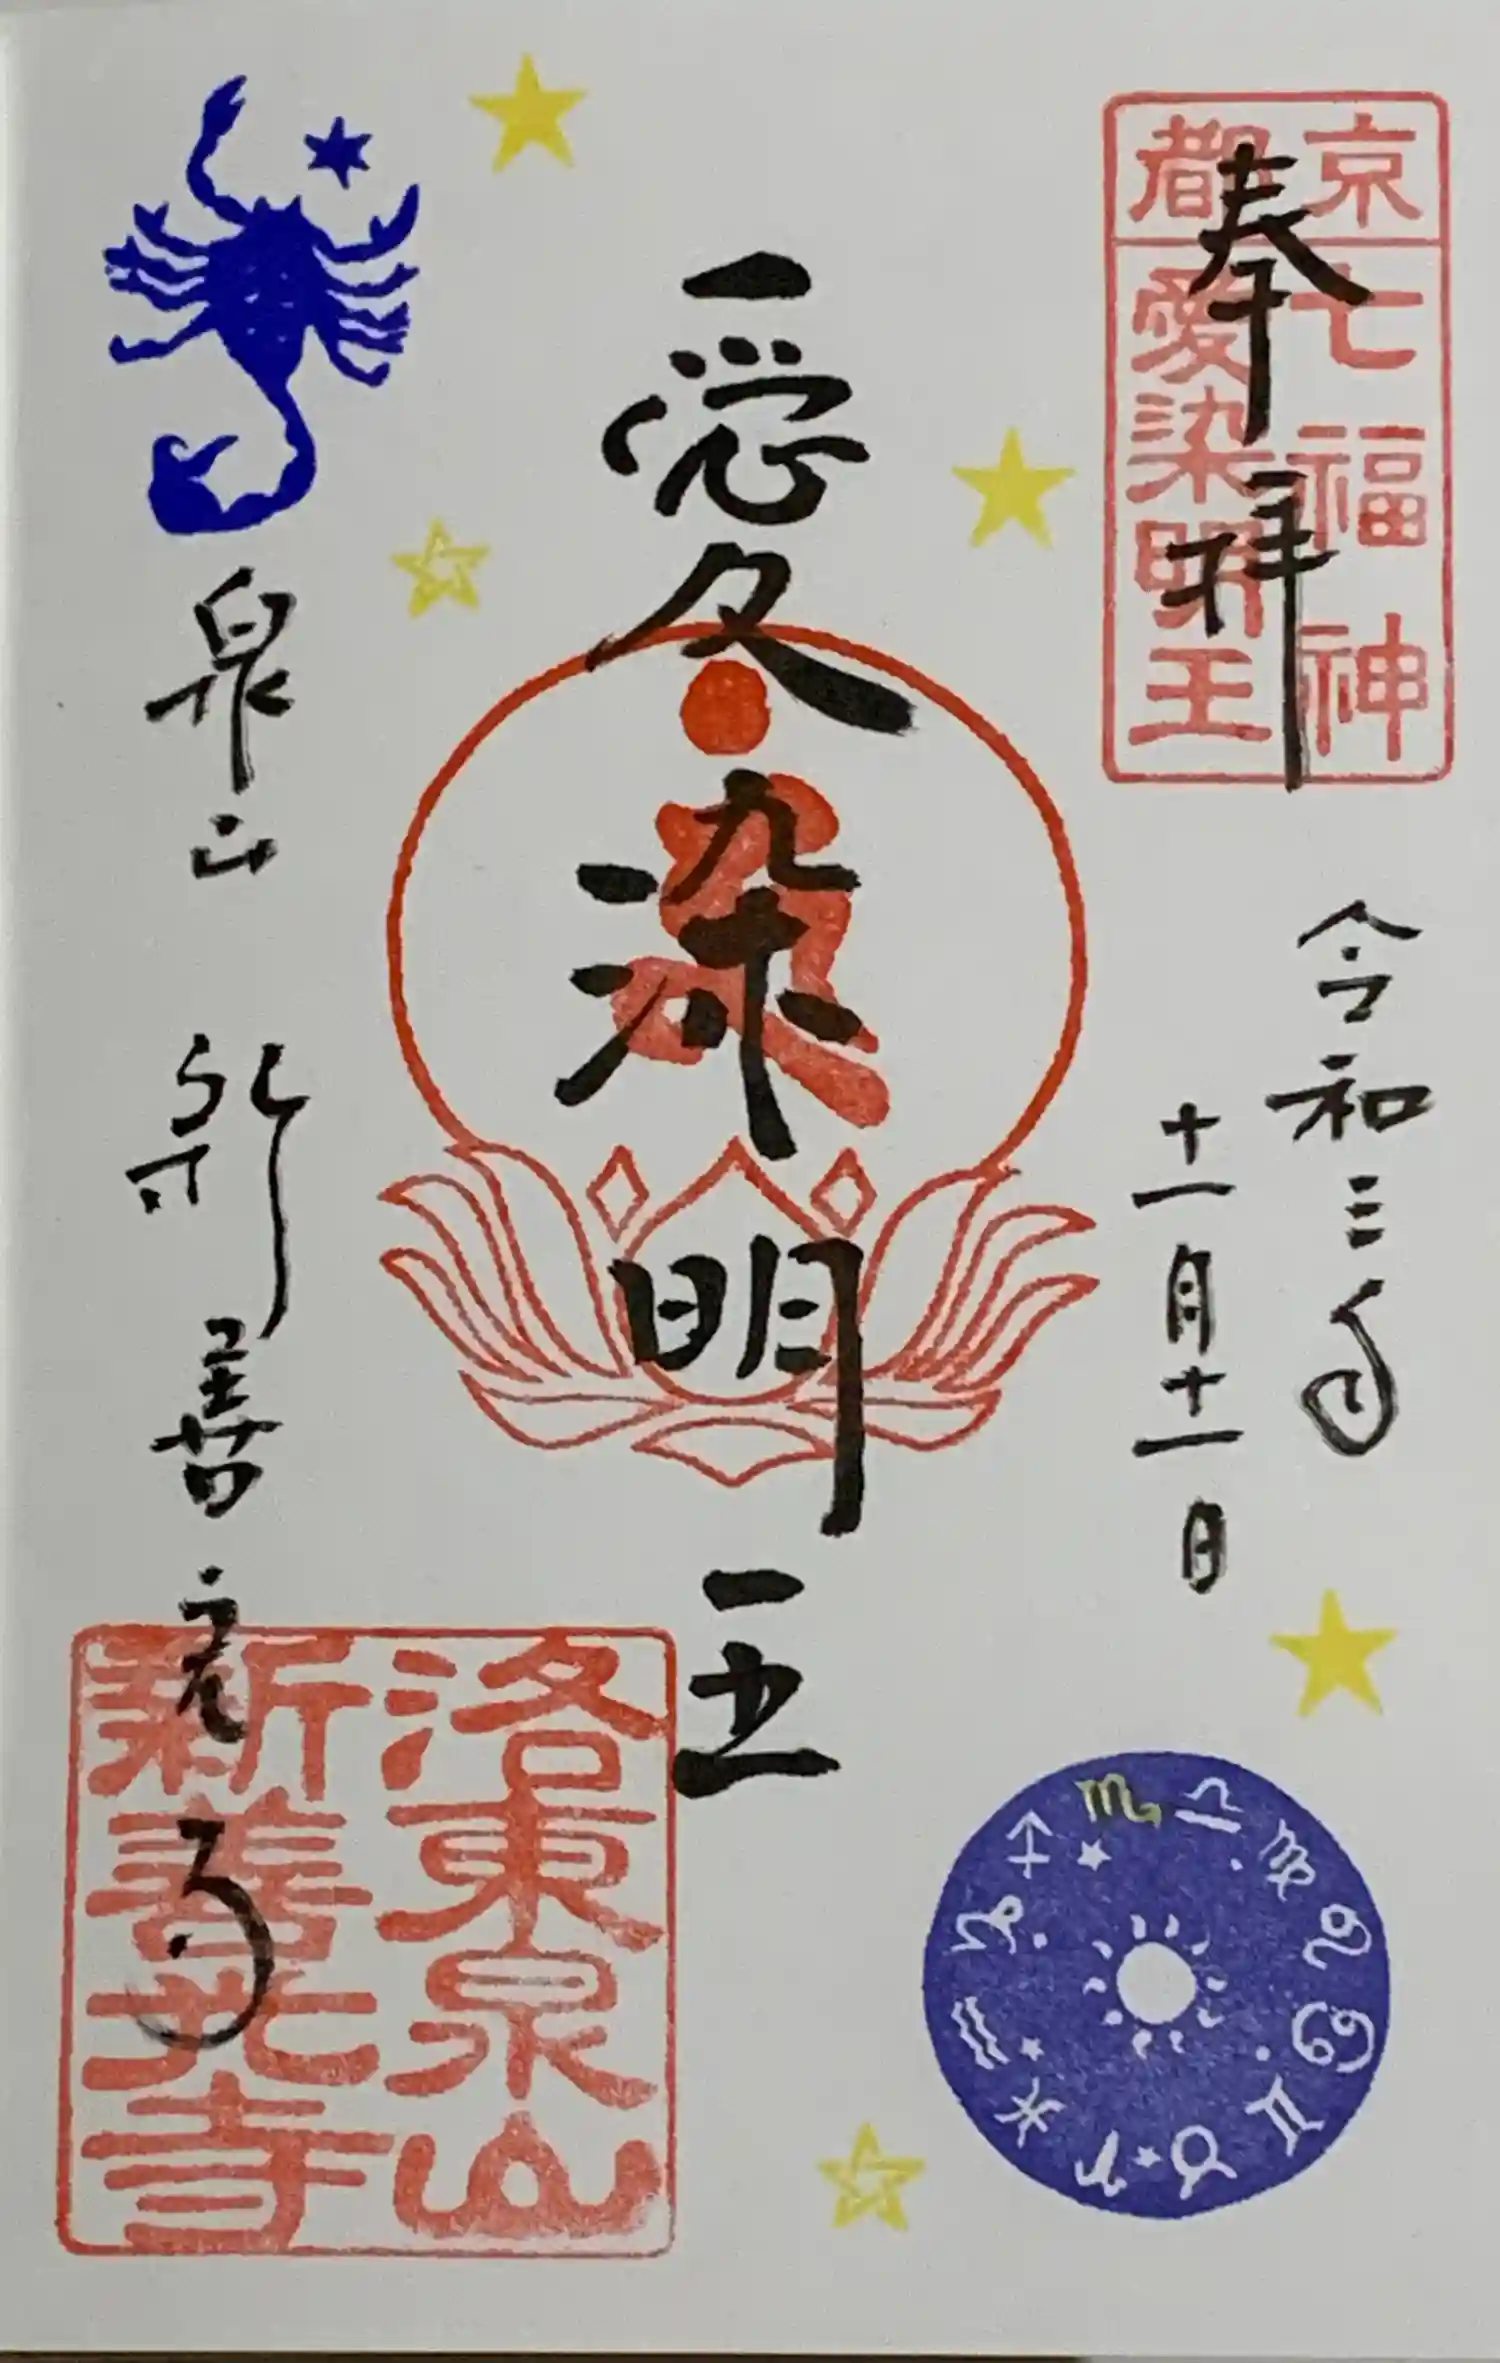 奉拝
京都
七福神
愛染明王
令和三年
十一月十一日
愛染明王
泉山 新善光寺
洛東泉山
新善光寺